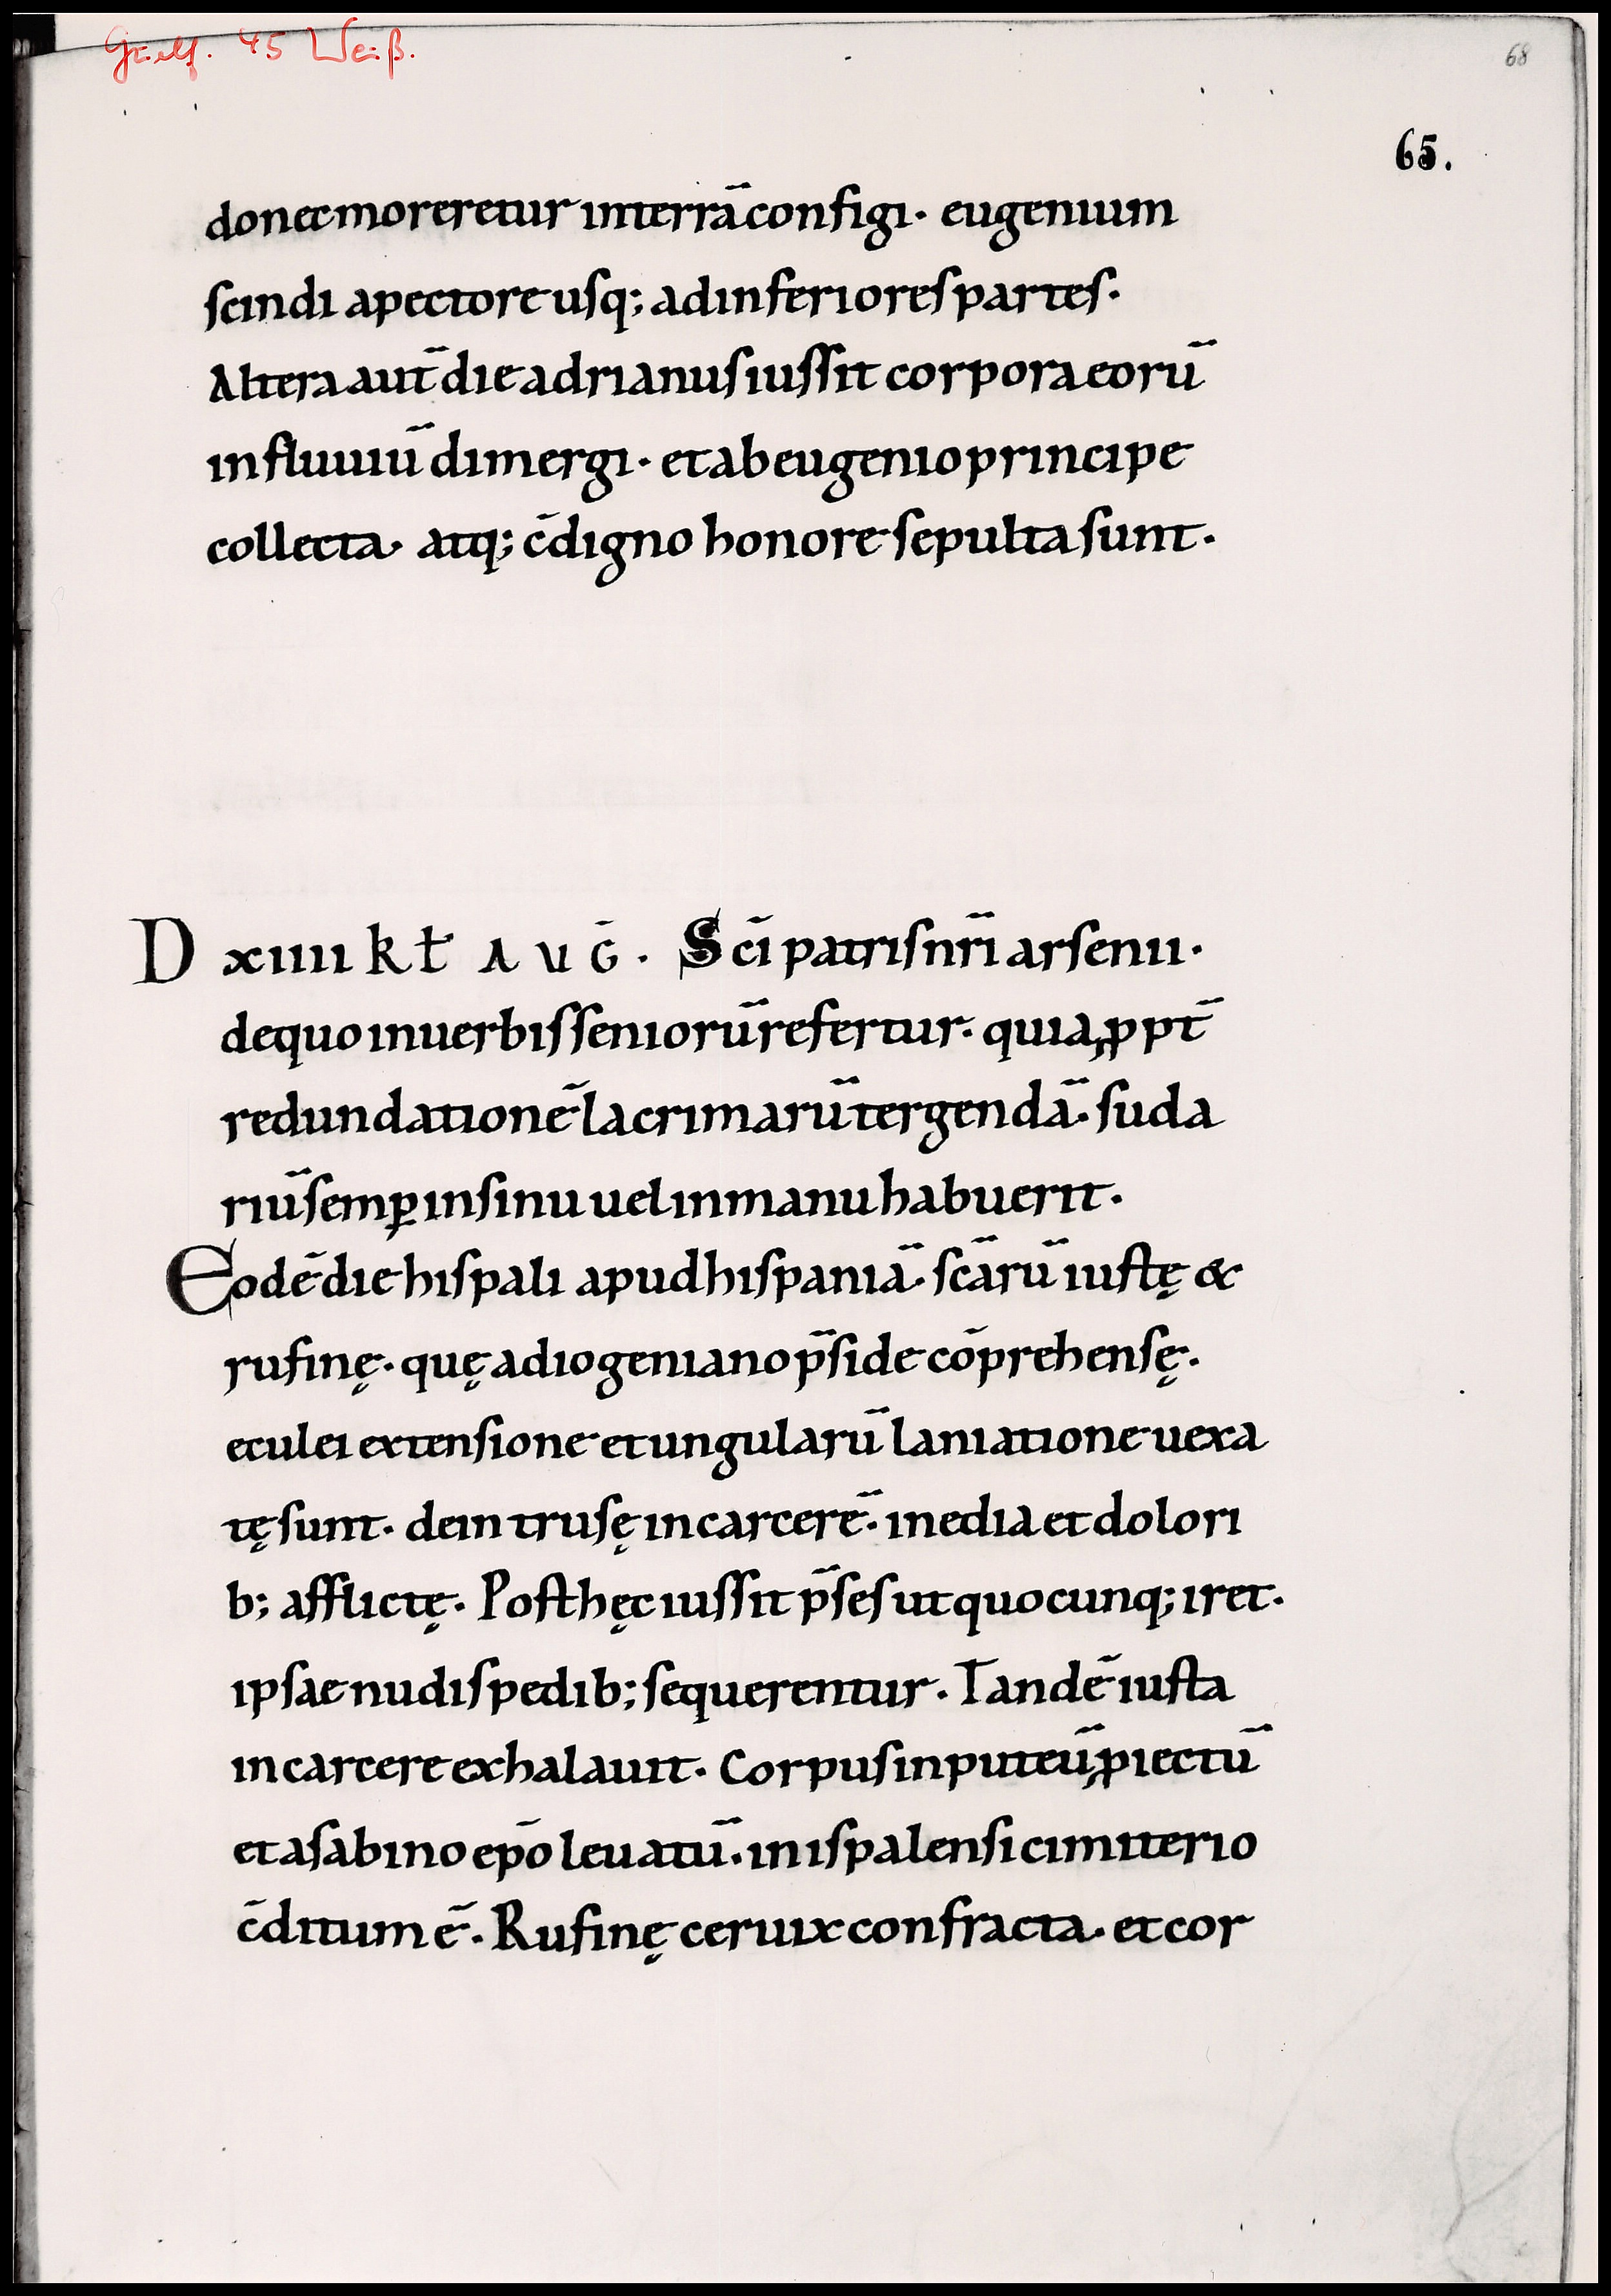 Guelf. 45 Weiß.
68
65.
donec moreretur interrā configi· eugenium
scindi a pectore usq; ad inferiores partes·
Altera aut̄ die adrianus iussit corpora eorū
in fluuiū dimergi· et ab eugenio principe
collecta· atq; c̄digno honore sepulta sunt·
D xiiii kł AUḠ· Scī patris nr̄i arsenii·
de quo in uerbis seniorū refertur· quia ꝓpt̄
redundationē lacrimarū tergendā· suda
riū semꝑ in sinu uel in manu habuerit·
Eodē die hispali apud hispaniā· scārū iustę &
rufinę· quę a diogeniano p̄side cōprehensę·
eculei extensione et ungularū laniatione uexa
tę sunt· dein trusę in carcerē· inedia et dolori
b; afflictę· Post hęc iussit p̄ses ut quocunq; iret·
ipsae nudis pedib; sequerentur· Tandē iusta
in carcere exhalauit· Corpus in puteū ꝓiectū
et a sabino ep̄o leuatū· in ispalensi cimiterio
c̄ditum ē· Rufinę ceruix confracta· et cor